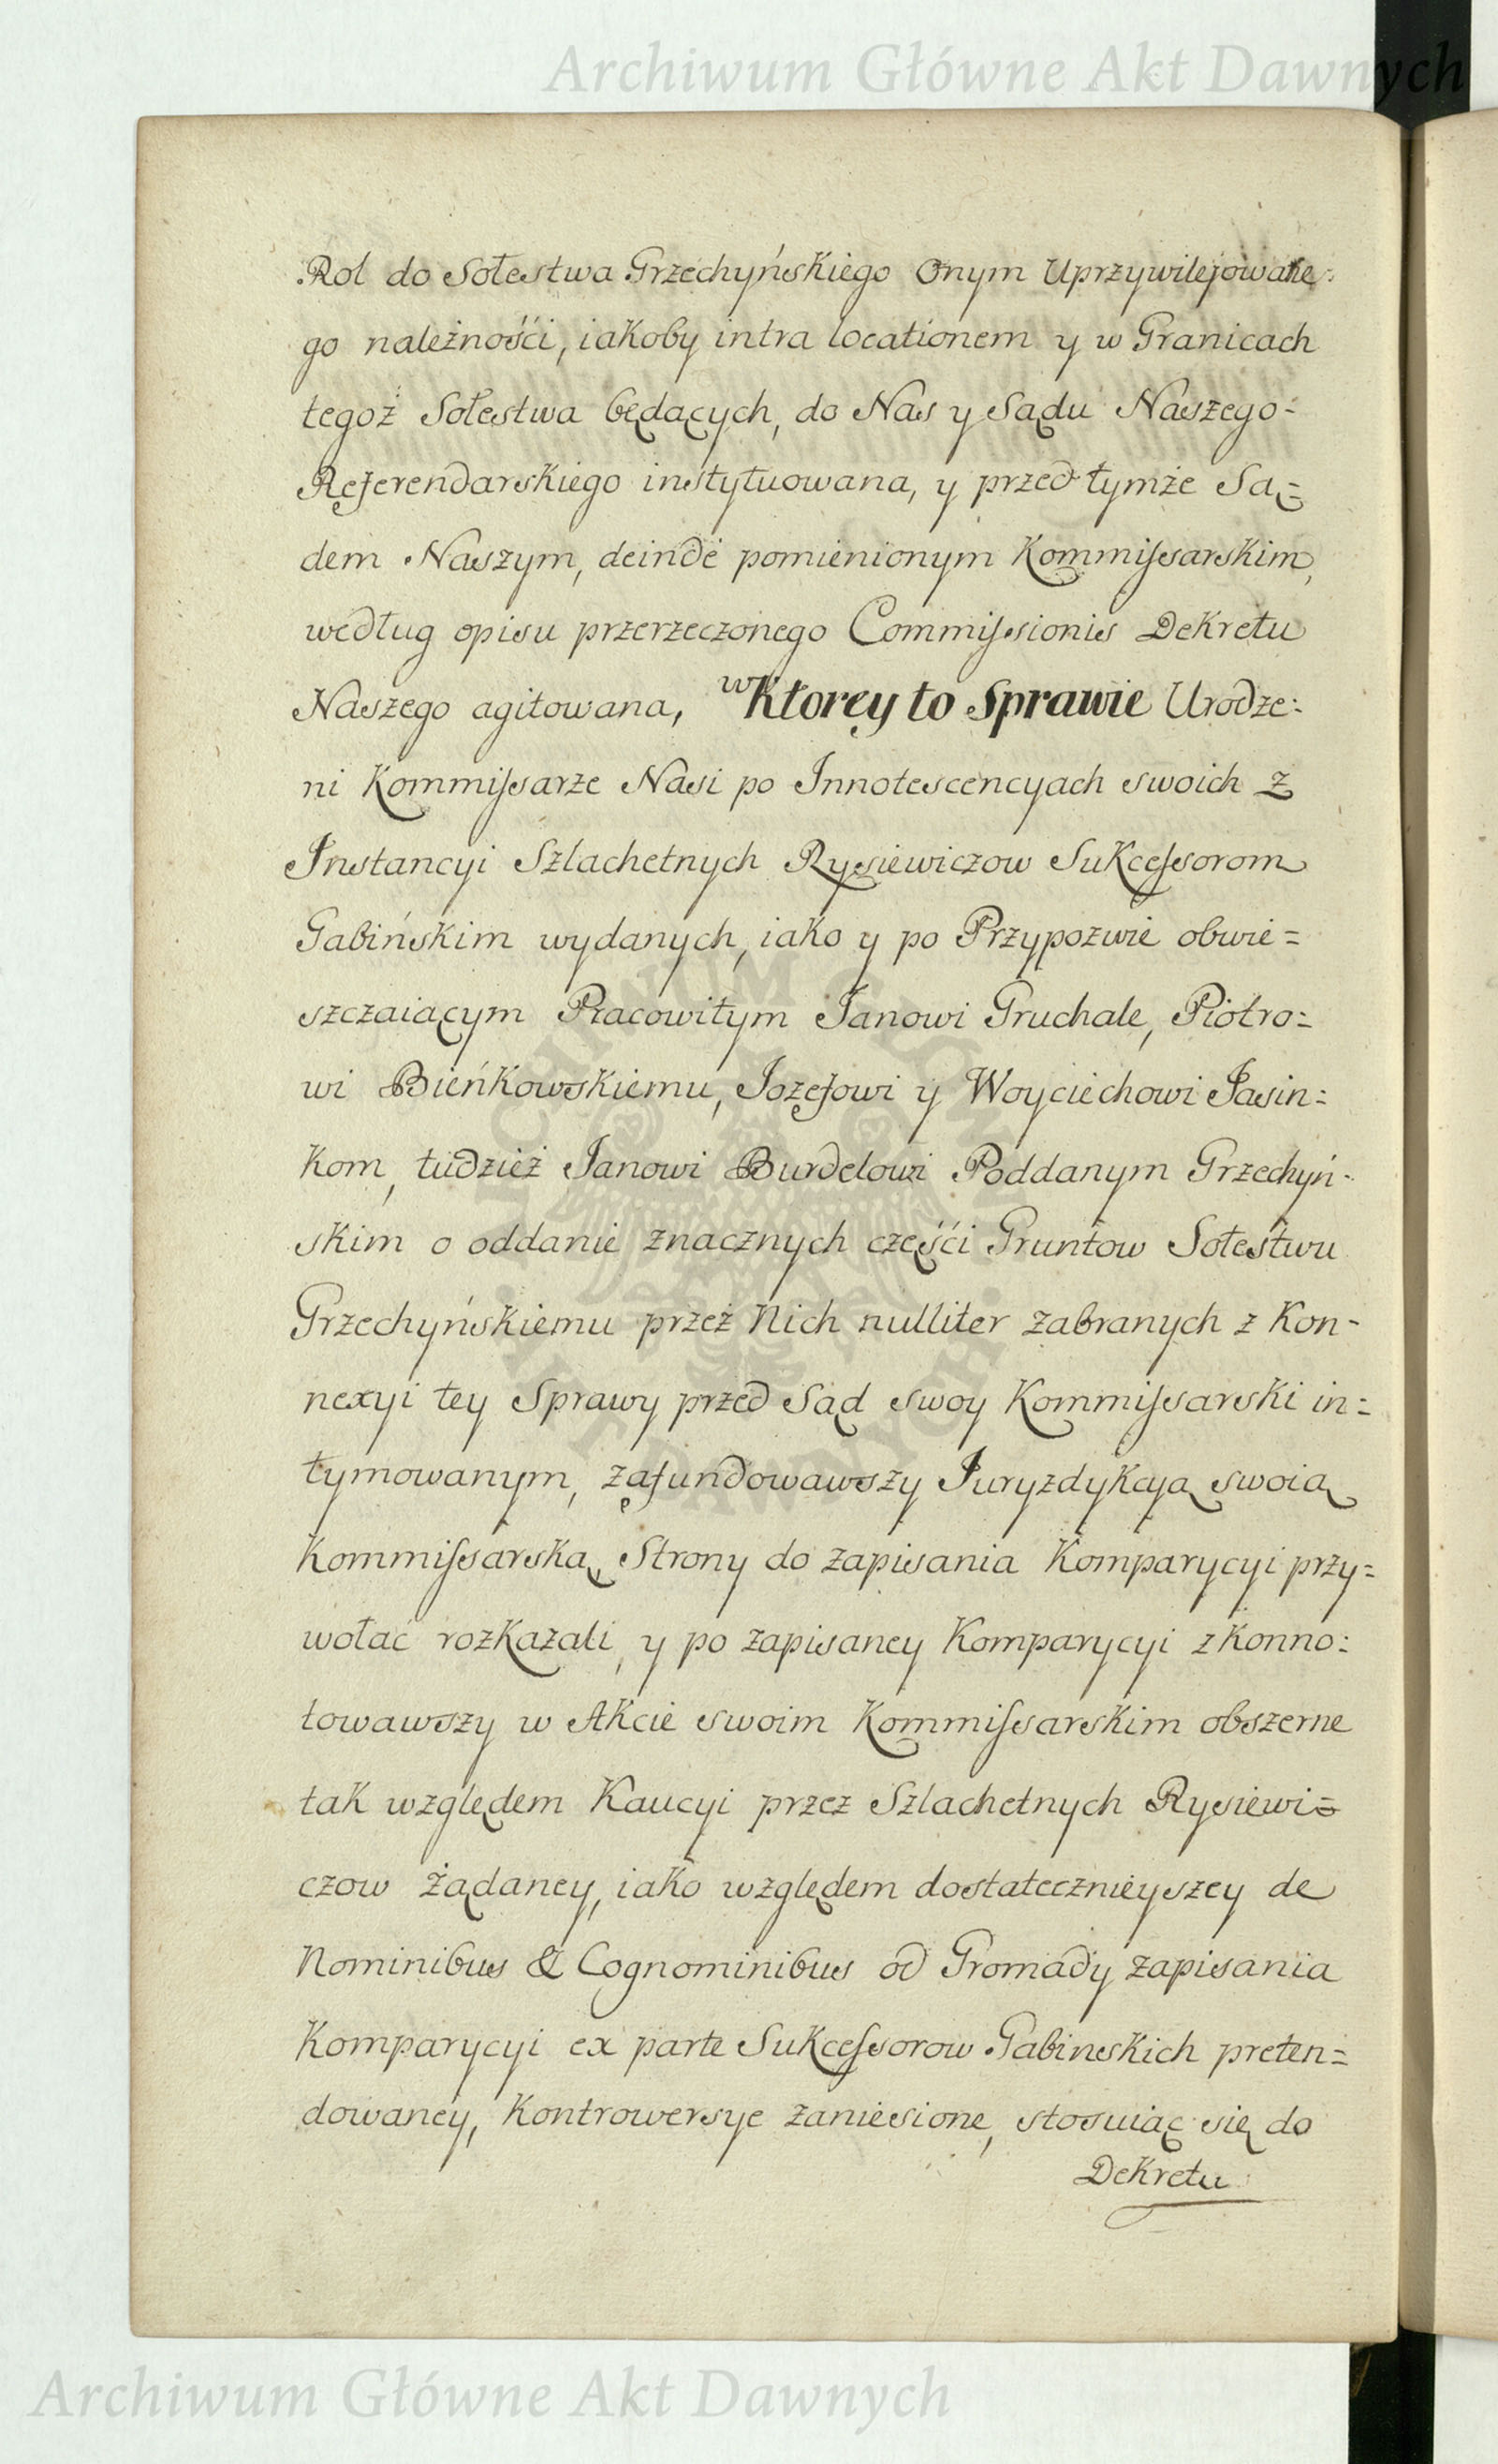 Archiwum Główne Akt Dawnych
Rol do Sołestwa Grzechyńskiego Onym Uprzywilejowane:
go należnośći, iakoby intra locationem y w Granicach
tegoż Sołestwa będących, do Nas y Sądu Naszego-
Referendarskiego instytuowana, y przed tymże Są=
dem Naszym, deinde pomienionym Kommissarskim,
według opisu przerzeczonego Commissionis Dekretu
Naszego agitowana, w Ktorey to Sprawie Urodze:
ni Kommissarze Nasi po Innotescencyach swoich z
Instancyi Szlachetnych Rysiewiczow Sukcessorom
Gabińskim wydanych, iako y po Przypozwie obwie=
szczaiącym Pracowitym Janowi Gruchale, Piotro=
wi Bieńkowskiemu, Jozefowi y Woyciechowi Jasin=
kom, tudzież Janowi Burdelowi Poddanym Grzechyń-
skim o oddanie znacznych częśći Gruntow Sołestwu
Grzechyńskiemu przez Nich nulliter zabranych z Kon-
nexyi tey Sprawy przed Sąd swoy Kommissarski in=
tymowanym, zafundowawszy Juryzdykcyą swoią
Kommissarską, Strony do zapisania Komparycyi przy=
wołać rozkazali, y po zapisaney Komparycyi zkonno:
towawszy w Akcie swoim Kommissarskim obszerne
tak względem Kaucyi przez Szlachetnych Rysiewi=
czow żądaney, iako względem dostatecznieyszey de
Nominibus & Cognominibus od Gromady zapisania
Komparycyi ex parte Sukcessorow Gabinskich preten=
dowaney, Kontrowersye zaniesione, stosuiąc się do
Dekretu
Archiwum Główne Akt Dawnych